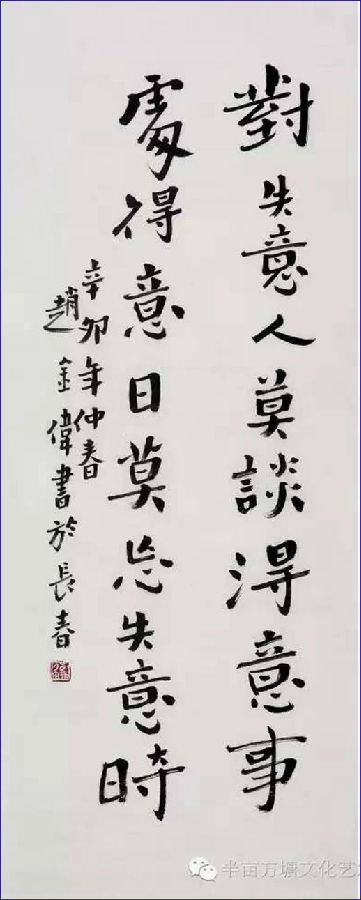 對失意人莫談得意事
處得意日莫忘失意時
辛卯年仲春
趙金偉書於長春
半亩方塘文化艺